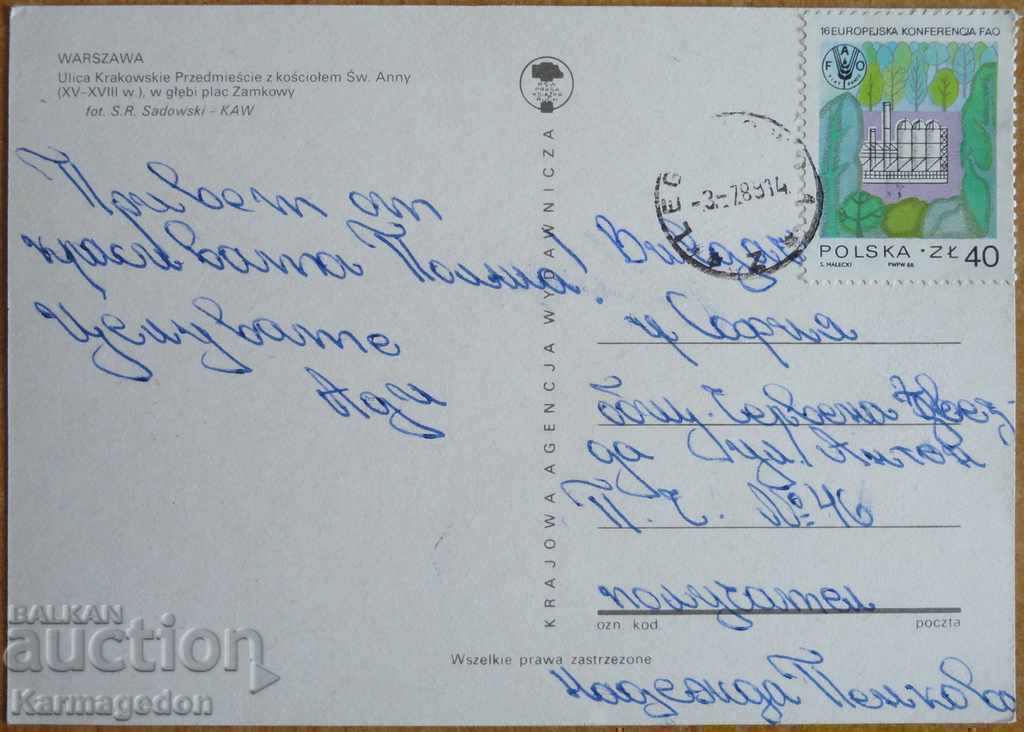 WARSZAWA
Ulica Krakowskie Przedmieście z kościołem Św. Anny
(XV–XVIII w.), w głębi plac Zamkowy
fot. S.R. Sadowski - KAW
Привет от
красивата Полша!
Целувате
Ади
KRAJOWA AGENCJA WYDAWNICZA
16 EUROPEJSKA KONFERENCJA FAO
FAO
FIAT PANIS
POLSKA · ZŁ 40
S. MAŁECKI PWPW 88
-3-789 14
гр София
бул. Червена звез-
да (ул. Антон
П. Ч. №: 46
получател
ozn. kod poczta
Надежда Пенкова
Wszelkie prawa zastrzeżone
BALKAN
auction
Karmagedon